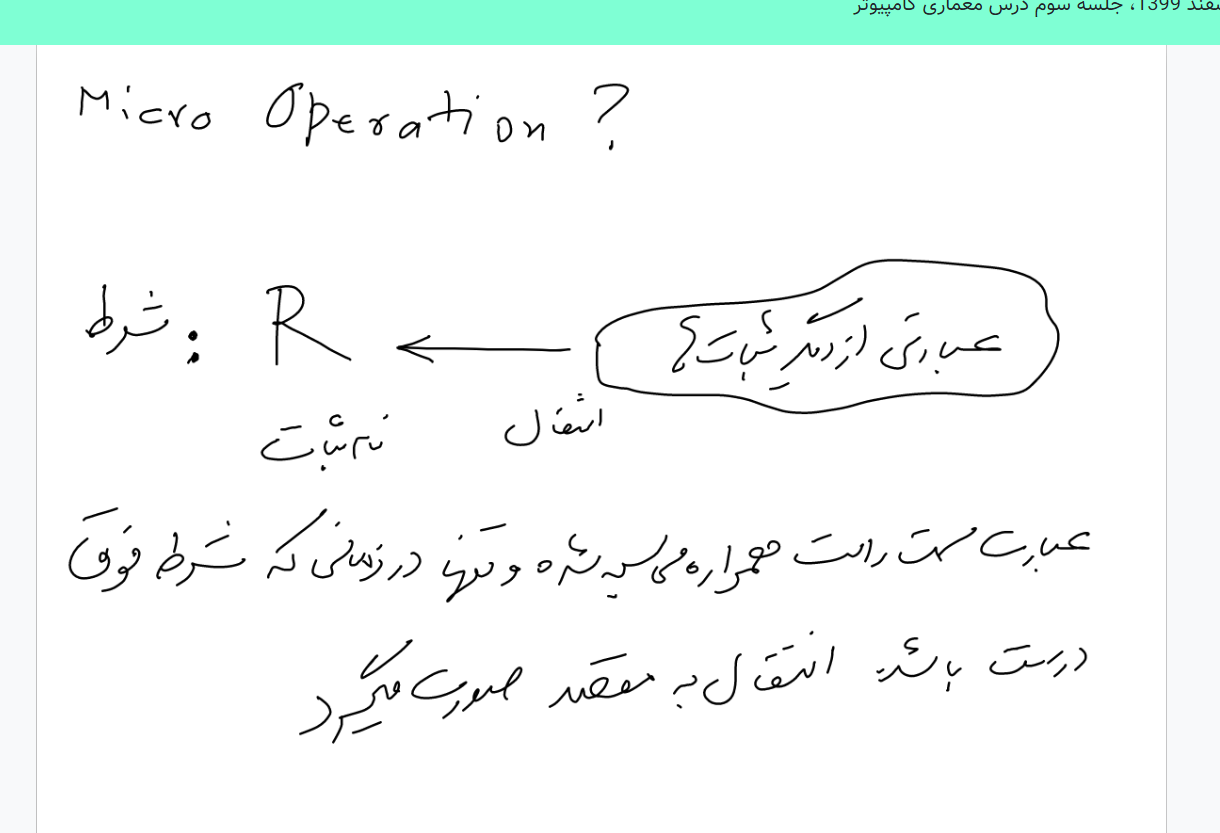 سفند 1399، جلسه سوم درس معماری کامپیوتر
Micro Operation ?
شرط : R ← عبارتی از دیگر ثبات ها
نام ثبات انتقال
عبارت سمت راست همواره محاسبه شده و تنها در زمانی که شرط فوق
درست باشد انتقال به مقصد صورت میگیرد